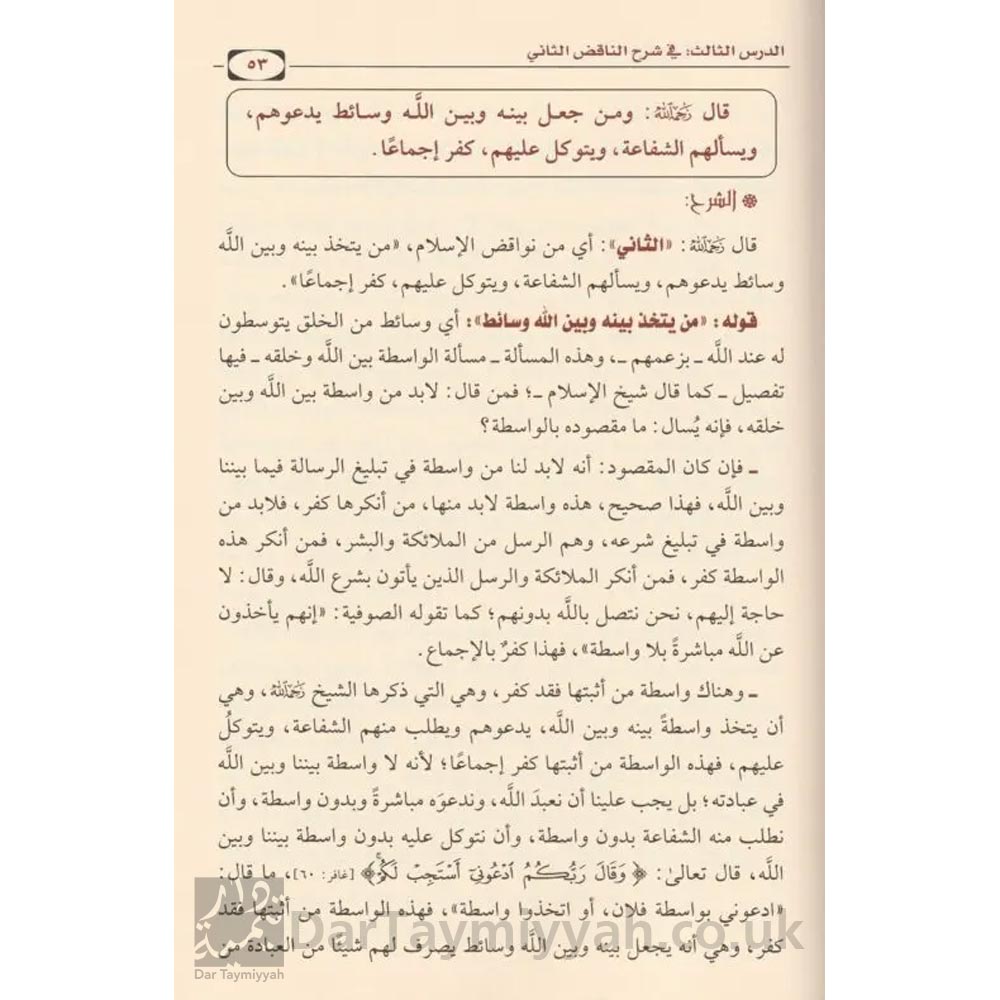 الدرس الثالث: في شرح الناقض الثاني
٥٣
قال رَحِمَهُ اللَّهُ: ومن جعل بينه وبين اللَّه وسائط يدعوهم،
ويسألهم الشفاعة، ويتوكل عليهم، كفر إجماعًا.
الشرح:
قال رَحِمَهُ اللَّهُ: «الثاني»: أي من نواقض الإسلام، «من يتخذ بينه وبين اللَّه
وسائط يدعوهم، ويسألهم الشفاعة، ويتوكل عليهم، كفر إجماعًا».
قوله: «من يتخذ بينه وبين اللَّه وسائط»: أي وسائط من الخلق يتوسطون
له عند اللَّه ـ بزعمهم ـ، وهذه المسألة ـ مسألة الواسطة بين اللَّه وخلقه ـ فيها
تفصيل ـ كما قال شيخ الإسلام ـ؛ فمن قال: لابد من واسطة بين اللَّه وبين
خلقه، فإنه يُسال: ما مقصوده بالواسطة؟
ـ فإن كان المقصود: أنه لابد لنا من واسطة في تبليغ الرسالة فيما بيننا
وبين اللَّه، فهذا صحيح، هذه واسطة لابد منها، من أنكرها كفر، فلابد من
واسطة في تبليغ شرعه، وهم الرسل من الملائكة والبشر، فمن أنكر هذه
الواسطة كفر، فمن أنكر الملائكة والرسل الذين يأتون بشرع اللَّه، وقال: لا
حاجة إليهم، نحن نتصل باللَّه بدونهم؛ كما تقوله الصوفية: «إنهم يأخذون
عن اللَّه مباشرةً بلا واسطة»، فهذا كفرٌ بالإجماع.
ـ وهناك واسطة من أثبتها فقد كفر، وهي التي ذكرها الشيخ رَحِمَهُ اللَّهُ، وهي
أن يتخذ واسطةً بينه وبين اللَّه، يدعوهم ويطلب منهم الشفاعة، ويتوكلُ
عليهم، فهذه الواسطة من أثبتها كفر إجماعًا؛ لأنه لا واسطة بيننا وبين اللَّه
في عبادته؛ بل يجب علينا أن نعبدَ اللَّه، وندعوَه مباشرةً وبدون واسطة، وأن
نطلب منه الشفاعة بدون واسطة، وأن نتوكل عليه بدون واسطة بيننا وبين
اللَّه، قال تعالىٰ: ﴿وَقَالَ رَبُّكُمُ ٱدْعُونِيٓ أَسْتَجِبْ لَكُمْۚ﴾ [غافر: ٦٠]، ما قال:
«ادعوني بواسطة فلان، أو اتخذوا واسطة»، فهذه الواسطة من أثبتها فقد
كفر، وهي أنه يجعل بينه وبين اللَّه وسائط يصرف لهم شيئًا من العبادة من
DarTaymiyyah.co.uk
Dar Taymiyyah